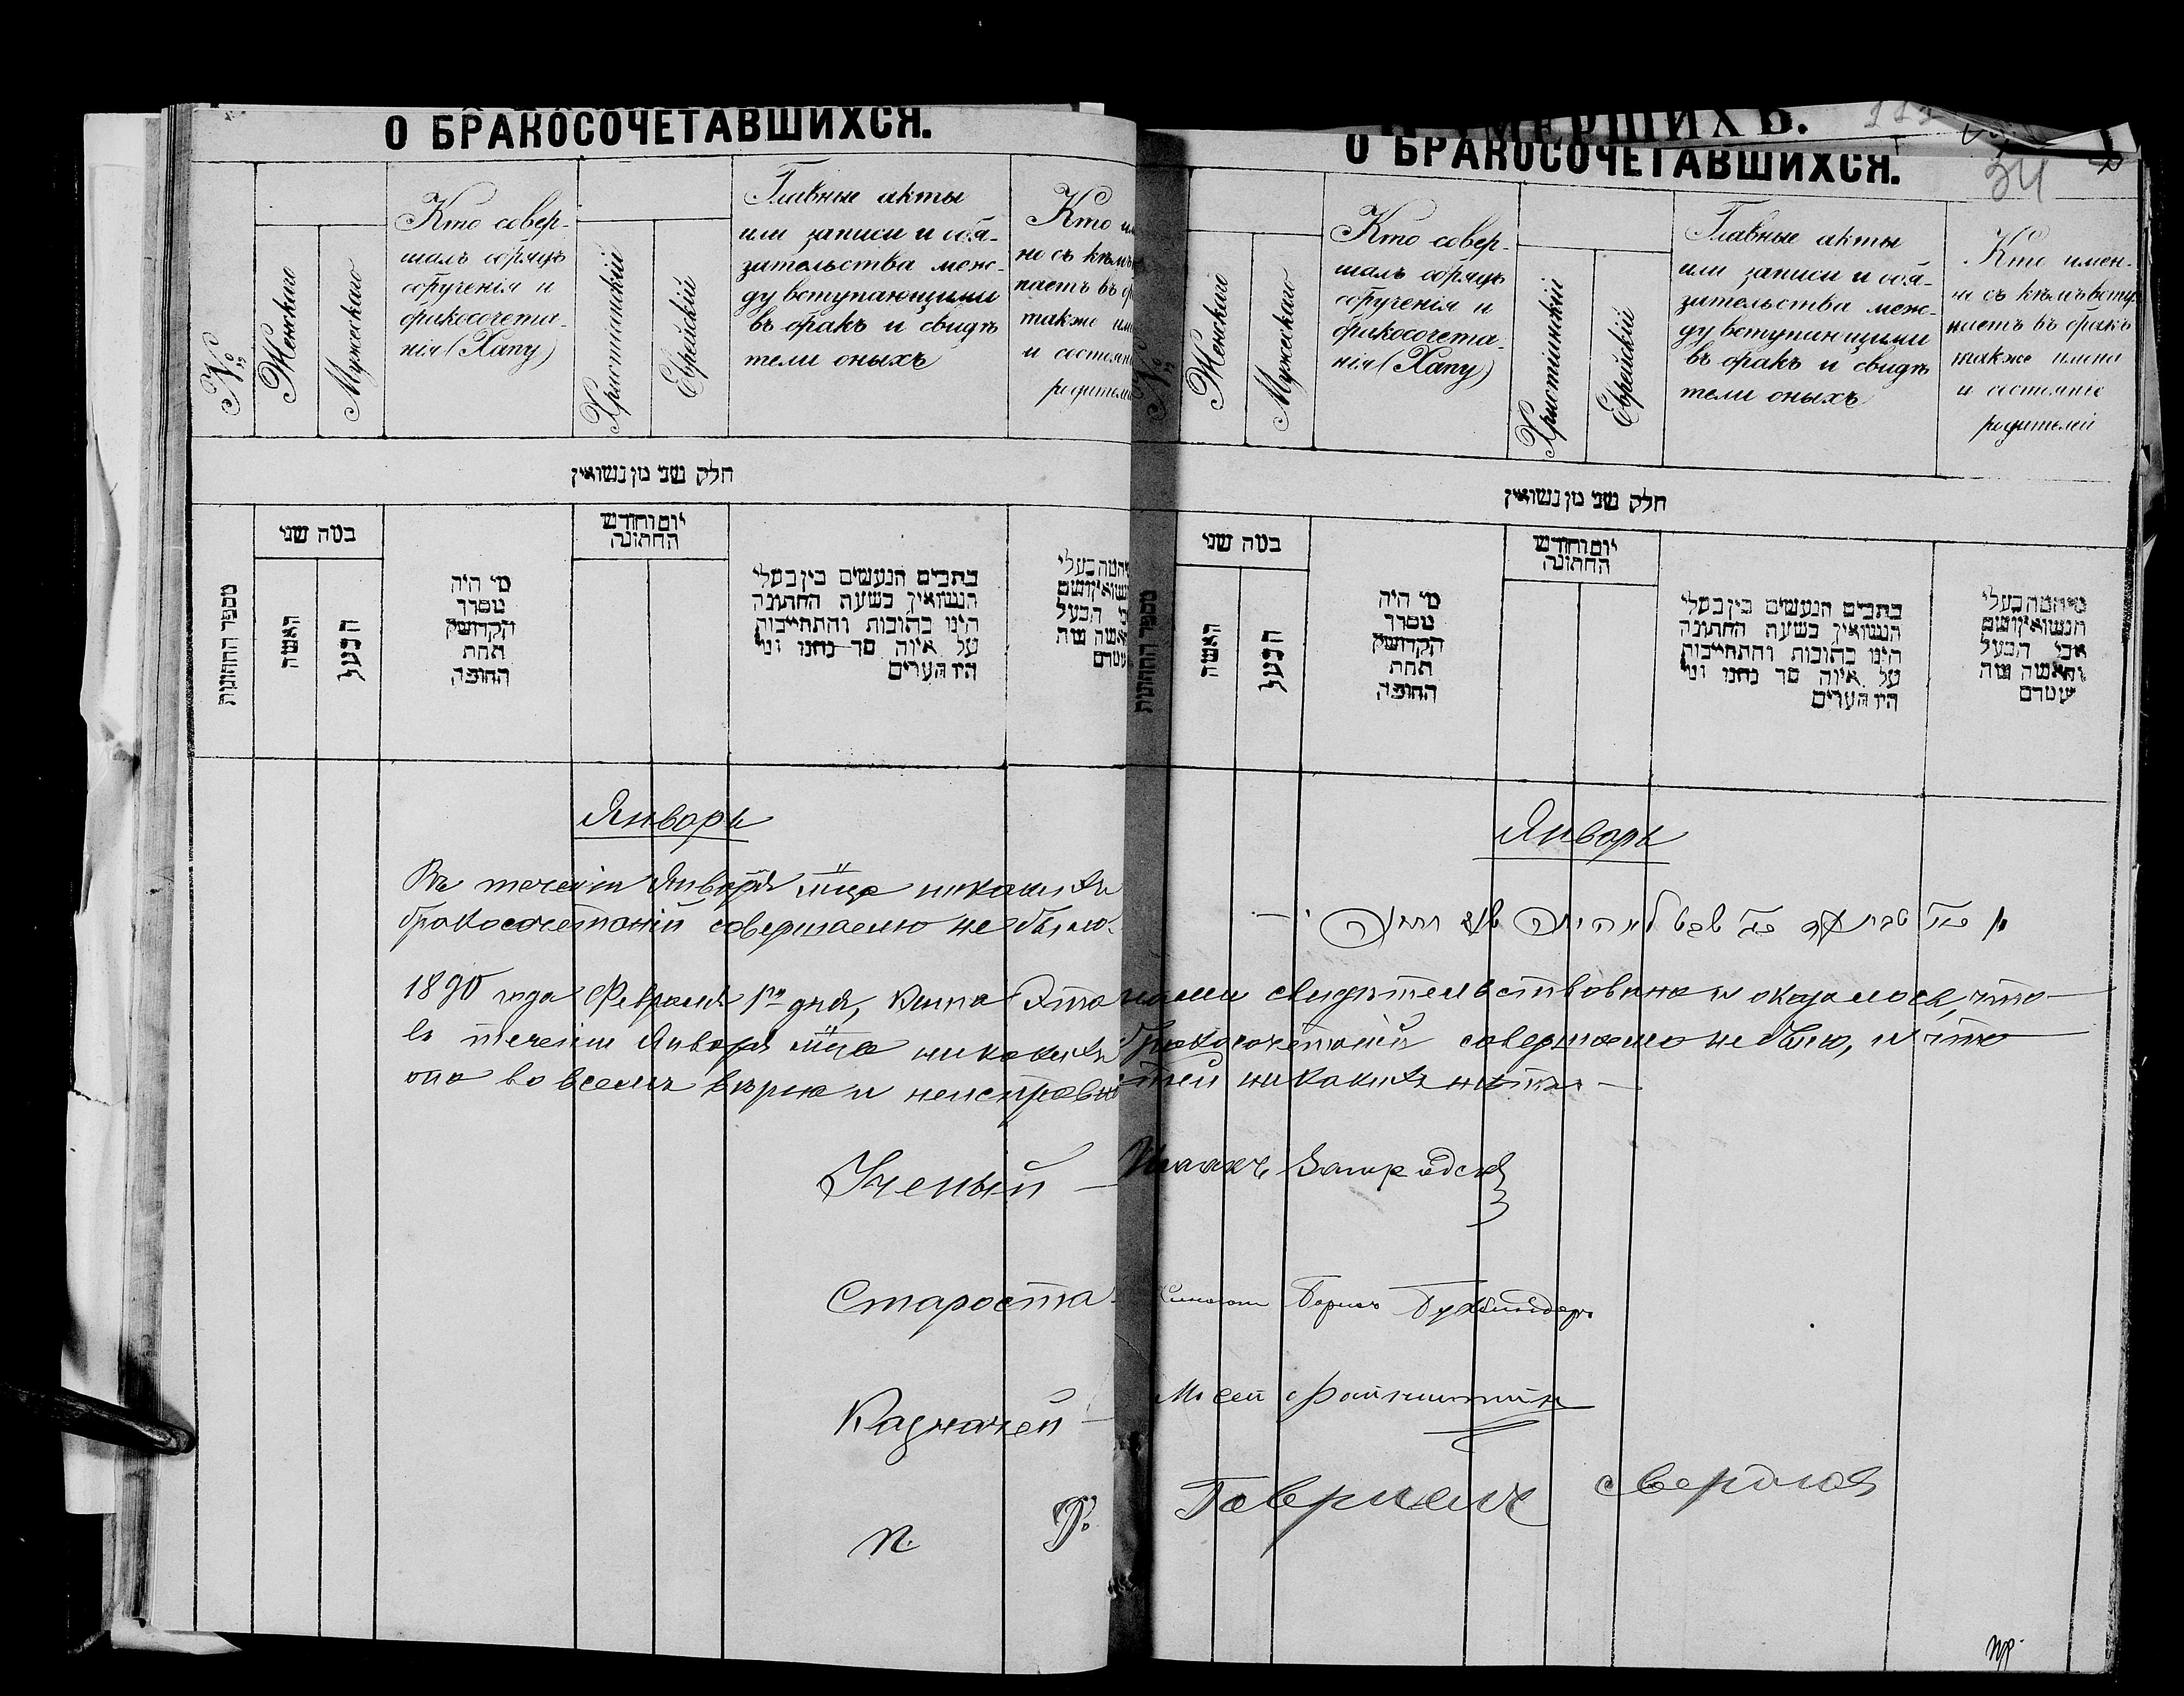 О БРАКОСОЧЕТАВШИХСЯ.
№
Женскаго
Мужескаго
Кто совер-
шалъ обрядъ
обрученія и
бракосочета-
нія (Хапу)
Христіанскій
Еврейскій
Главные акты
или записи и обя-
зательства меж-
ду вступающими
въ бракъ и свидѣ
тели оныхъ
Кто
но съ кѣмъ
паетъ въ
также
и
родител
חלק שני מן נשואין
מספר החתונות
כמה שני
האשה
הבעל
מי היה
מסדר
הקדושין
תחת
החופה
יום וחודש
החתונה
כתבים הנעשים בין בעלי
הנשואין בשעת החתונה
היינו כתובות והתחייבות
על איזה סך
היו העדים
Январь
Въ теченіи Января мца никакихъ
бракосочетаній совершаемо не было.
УМЕРШИХЪ.
О БРАКОСОЧЕТАВШИХСЯ.
34
№
Женскаго
Мужескаго
Кто совер-
шалъ обрядъ
обрученія и
бракосочета-
нія (Хапу)
Христіанскій
Еврейскій
Главные акты
или записи и обя-
зательства меж-
ду вступающими
въ бракъ и свидѣ
тели оныхъ
Кто имен-
но съ кѣмъ всту
паетъ въ бракъ
также имена
и состояніе
родителей
חלק שני מן נשואין
מספר החתונות
כמה שני
האשה
הבעל
מי היה
מסדר
הקדושין
תחת
החופה
יום וחודש
החתונה
כתבים הנעשים בין בעלי
הנשואין בשעת החתונה
היינו כתובות והתחייבות
על איזה סך
היו העדים
אבי הבעל
Январь
1890 года Февраля 1го дня, книга эта нами свидѣтельствована и оказалось, что
въ теченіи Января мца никакихъ бракосочетаній совершаемо не было, и что
она во всемъ вѣрна и неисправностей никакихъ нѣтъ
Ученый Исаакъ
Староста Борисъ Бухбиндеръ
Казначей Мосей Файнштейнъ
П. Р. Гавриилъ Свердловъ